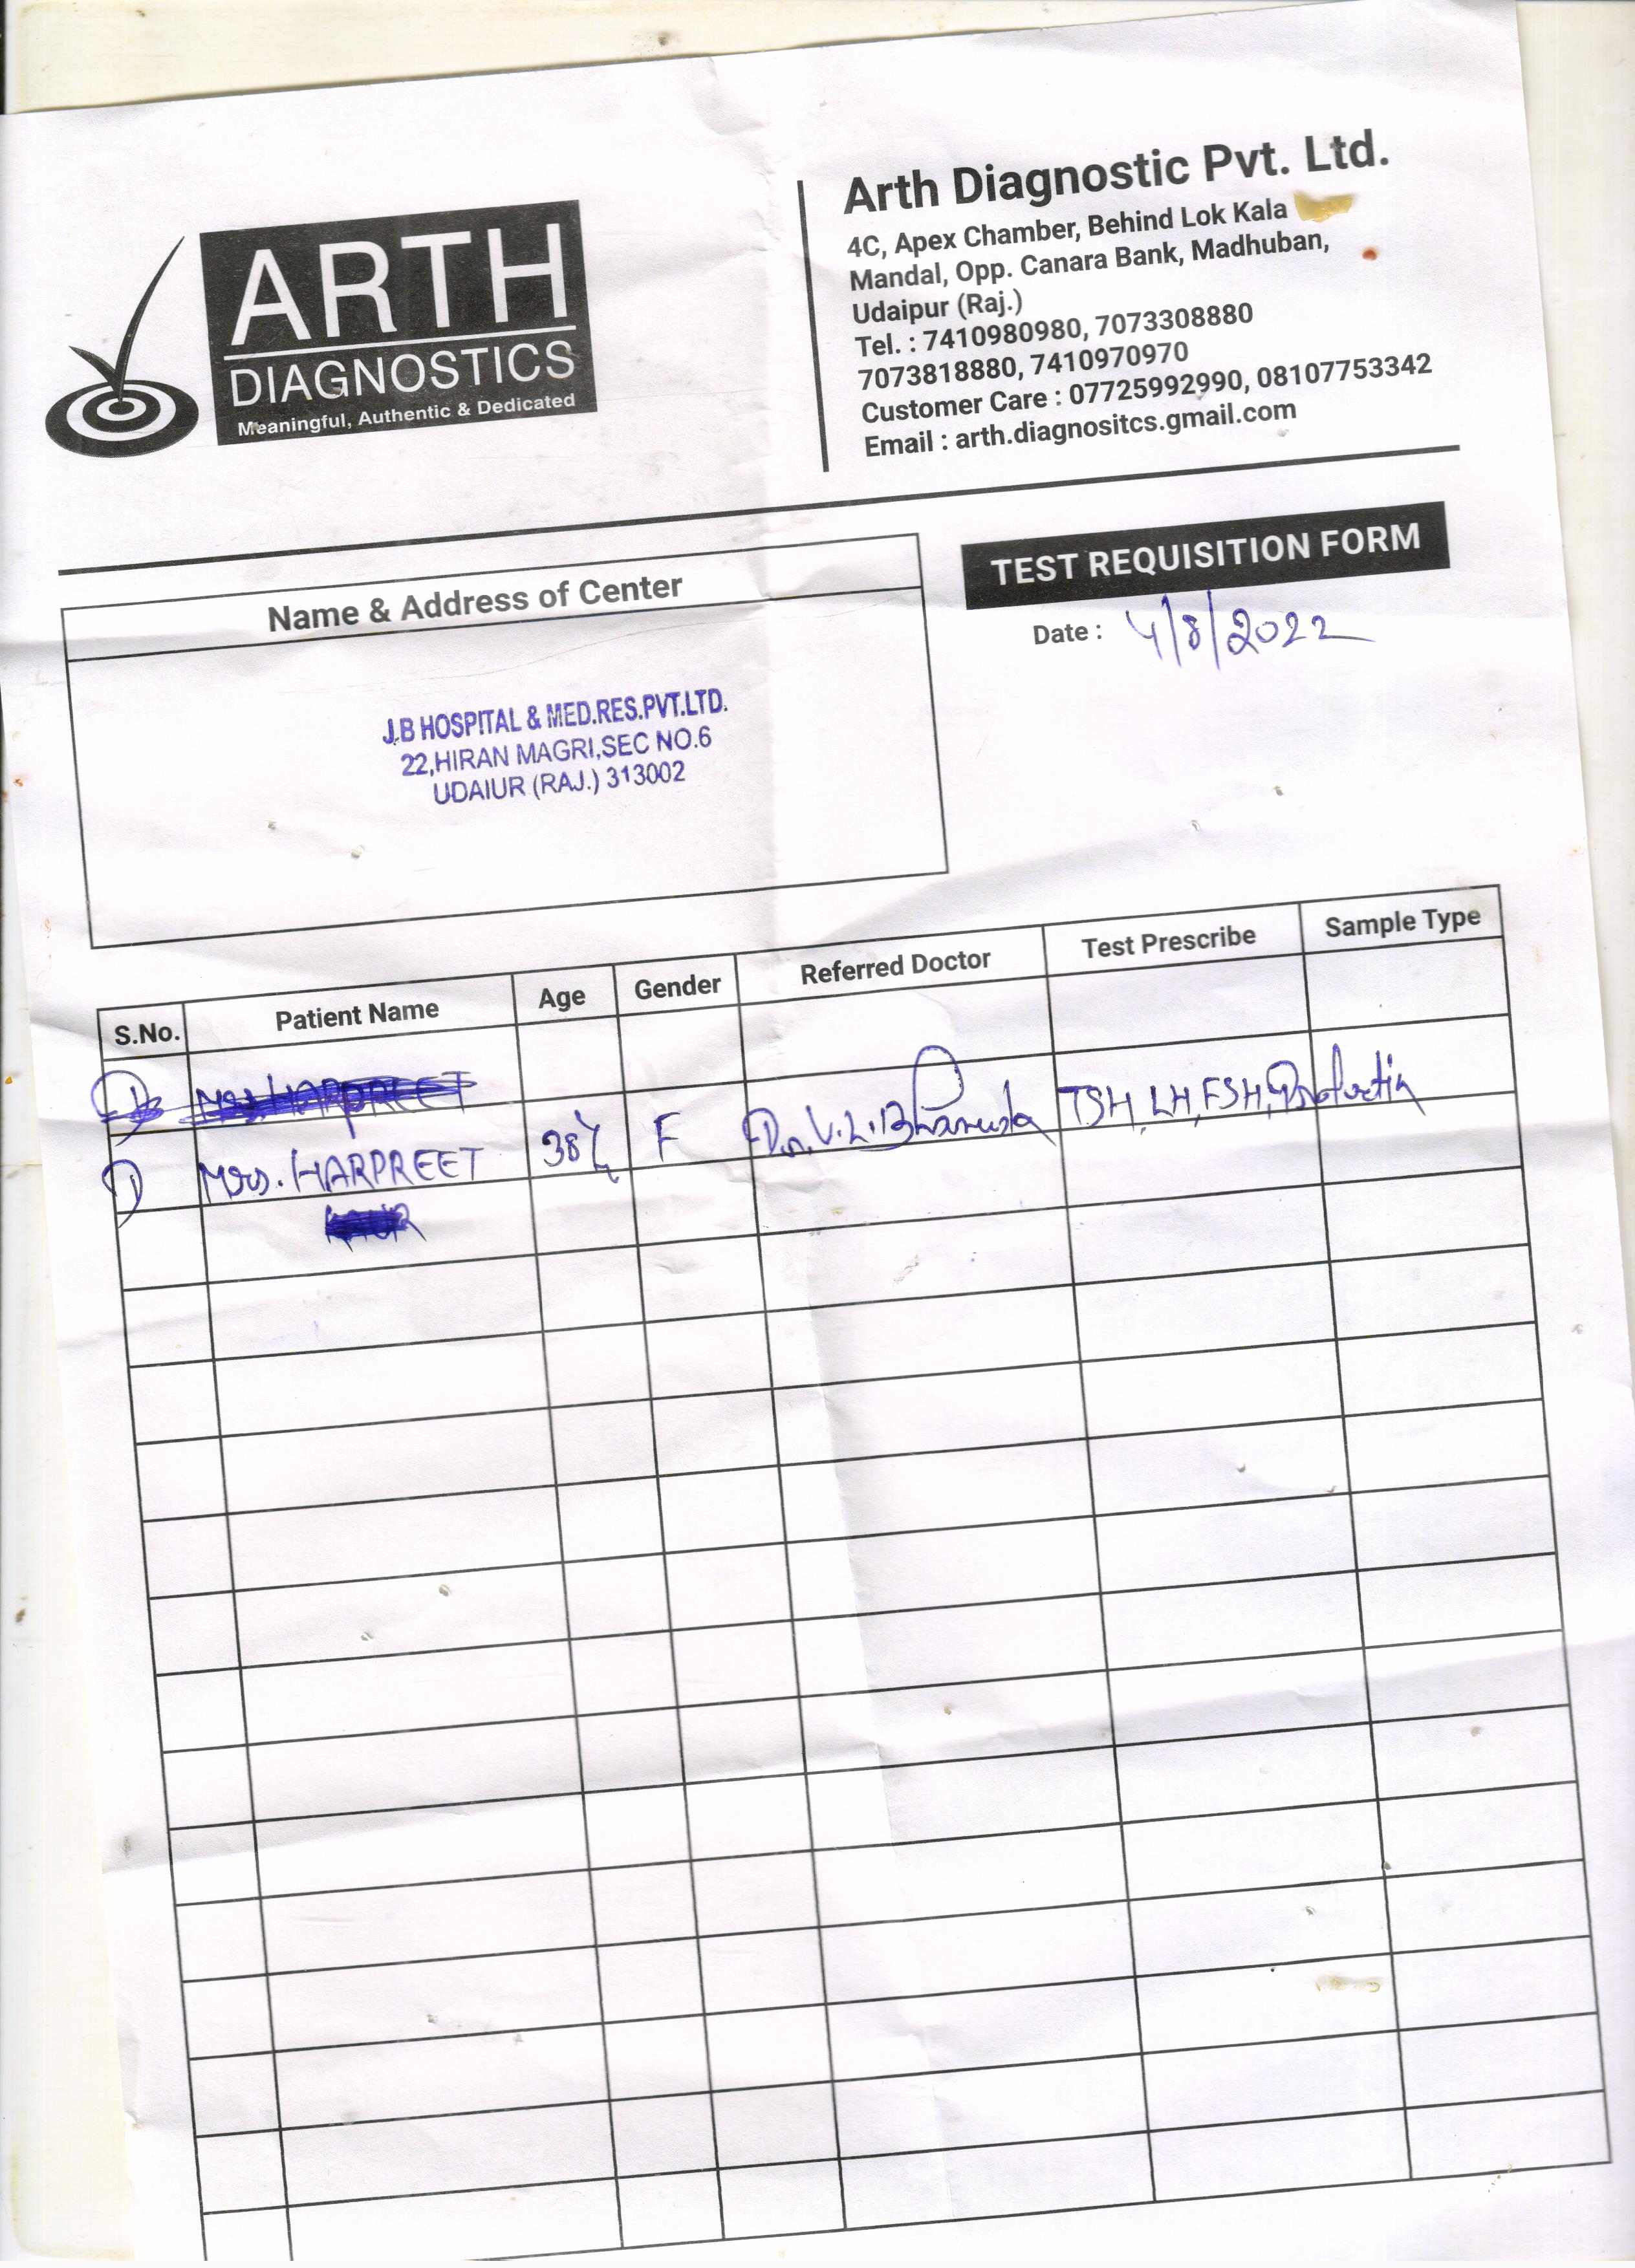 ARTH
DIAGNOSTICS
Meaningful, Authentic & Dedicated
Arth Diagnostic Pvt. Ltd.
4C, Apex Chamber, Behind Lok Kala
Mandal, Opp. Canara Bank, Madhuban,
Udaipur (Raj.)
Tel. : 7410980980, 7073308880
7073818880, 7410970970
Customer Care : 07725992990, 08107753342
Email : arth.diagnositcs.gmail.com
TEST REQUISITION FORM
Date : 4/8/2022
Name & Address of Center
J.B HOSPITAL & MED.RES.PVT.LTD.
22,HIRAN MAGRI,SEC NO.6
UDAIUR (RAJ.) 313002
S.No. Patient Name Age Gender Referred Doctor Test Prescribe Sample Type
Mrs. HARPREET
1) Mrs. HARPREET 38Y F Dr. V.L. TSH, LH, FSH, Prolactin
KAUR